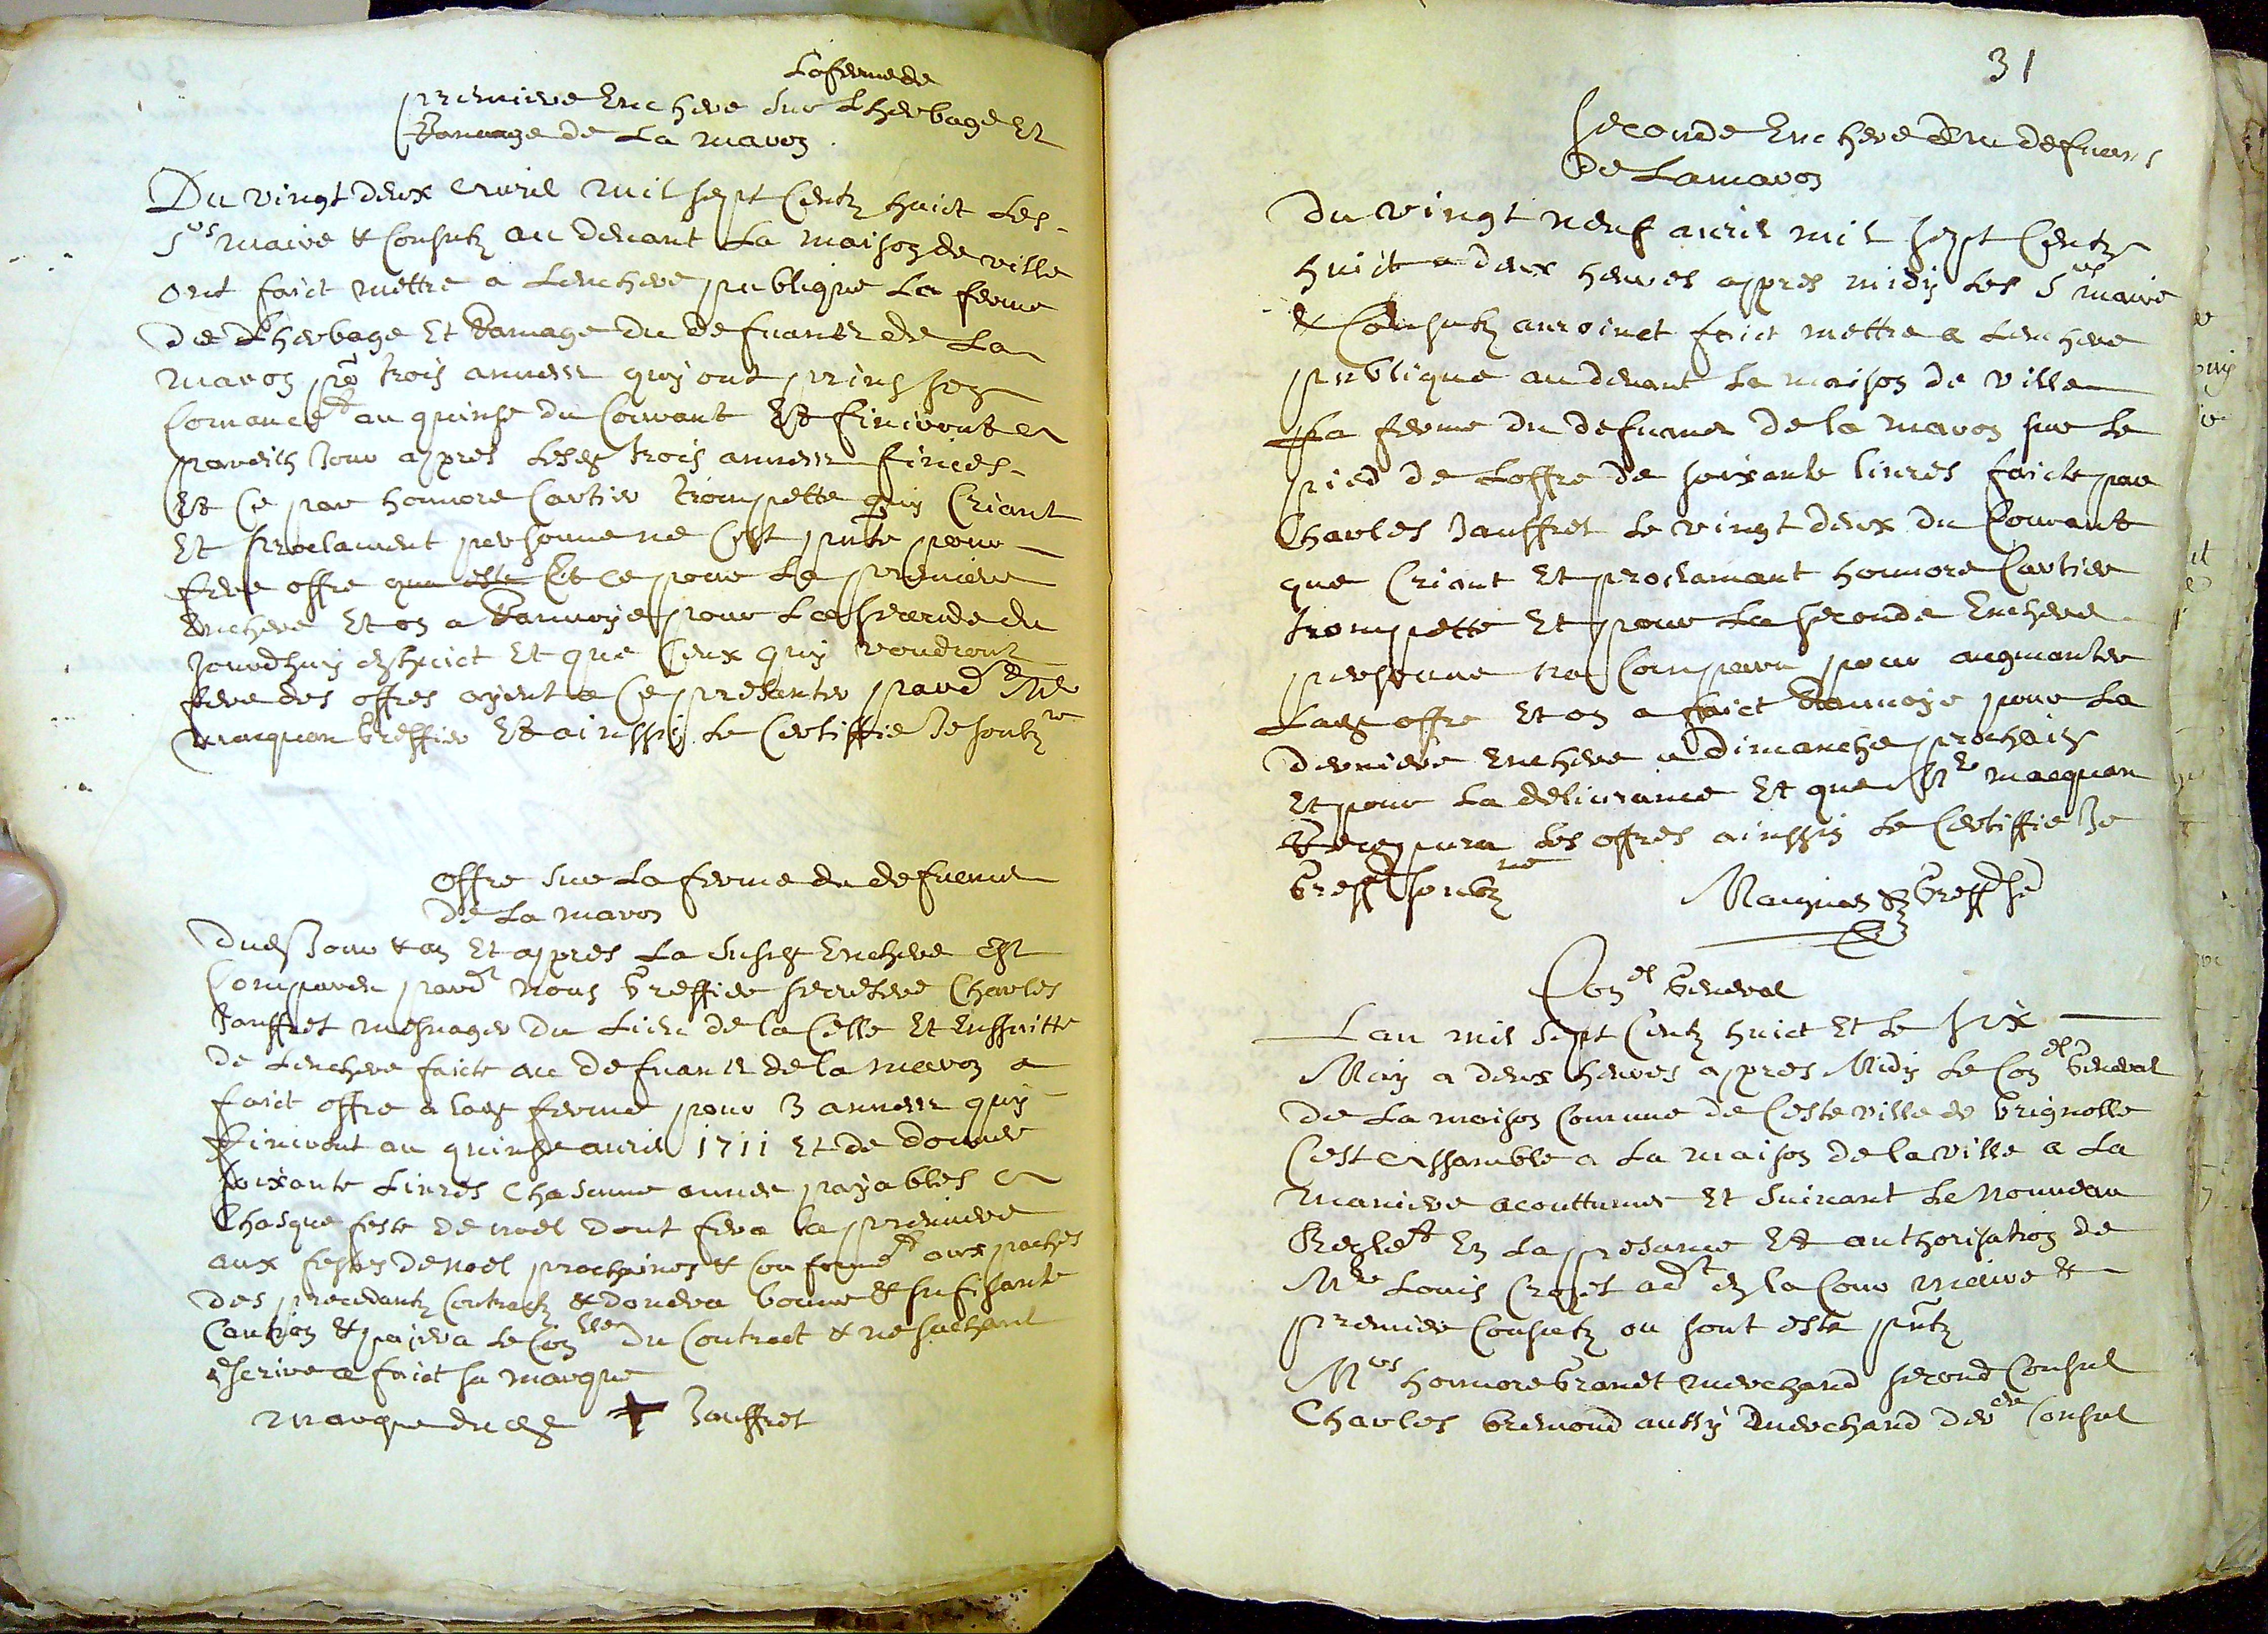 La ferme de
premiere Enchere sur Lherbage Et
Ramage de La maron
Du vingt deux avril mil sept Centz huict Les
Srs maire & Consulz au devant La maison de ville
ont faict mettre a Lenchere publique La ferme
de Lherbage Et Ramage du defuantz de La
maron pr trois annees quy ont prins son
Comancet au quinse du Courant Et finiront a
pareilh Jour appres Lesd trois annees finies
Et Ce par honnore Cartier trompette quy Criant
Et proclament personne ne Cest pnte pour
fere offre Et Ce pour La premiere
Enchere Et on a Ranvoye pour La seconde du
Jourdhuy en huict Et que Ceux quy voudront
fere des offres ayent a Ce presenter pard Me
macquan Greffier Et ainssy Le Certiffie Je soubz ne
offre sur La ferme du defuens
de La maron
Dud Jour & an Et appres La susd Enchere Est
Comparu pardt nous Greffier secretere Charles
Jauffret mesnager du Lieu de la Celle Et Enssuitte
de Lenchere faicte au defuans de la maron a
faict offre a lad ferme pour 3 annees quy
finiront au quinse avril 1711 Et de donner
soixante Livres Chascune annee payables a
Chasque feste de noel dont fera la premiere
aux festes de noel prochaines & Conformet aux paches
des precedantz Contractz & donera bonne & sufisante
Caution & paiera le Con lle du Contract & ne sachant
escrire a faict sa marque
marque dud + Jauffret
31
seconde Enchere du defuens
de Lamaron
Du vingt neuf avril mil sept Centz
huict a deux heures appres midy Les Srs maire
& Consulz auroinet faict mettre a Lenchere
publique audevant La maison de ville
La ferme du defuans de la maron sur Le
pied de Loffre de soixante livres faicte par
Charles Jauffret Le vingt deux du Courant
que Criant Et proclamant honnore Cartier
trompette Et pour La seconde Enchere
personne na Comparu pour augmanter
Lad offre Et on a faict Ranvoye pour La
derniere Enchere a dimanche prochain
Et pour La delivrance Et que Me macquan
Recepvra Les offres ainssin Le Certiffie Je
Greff soubz ne
Macquan Greff
Conel General
Lan mil sept Centz huict Et Le six
May a deux heures appres Midy Le Conel General
de La maison Comune de Ceste ville de Brignolle
Cest assamblé a La maison de la ville a La
maniere acouttumee Et suivant Le nouveau
Reglet En La presance Et authorisation de
Me Louis Croset adt en la Cour maire &
premier Consulz ou sont esté pntz
Mrs honnore Brandt merchand second Consul
Charles Bremond aussy merchand der er Consul